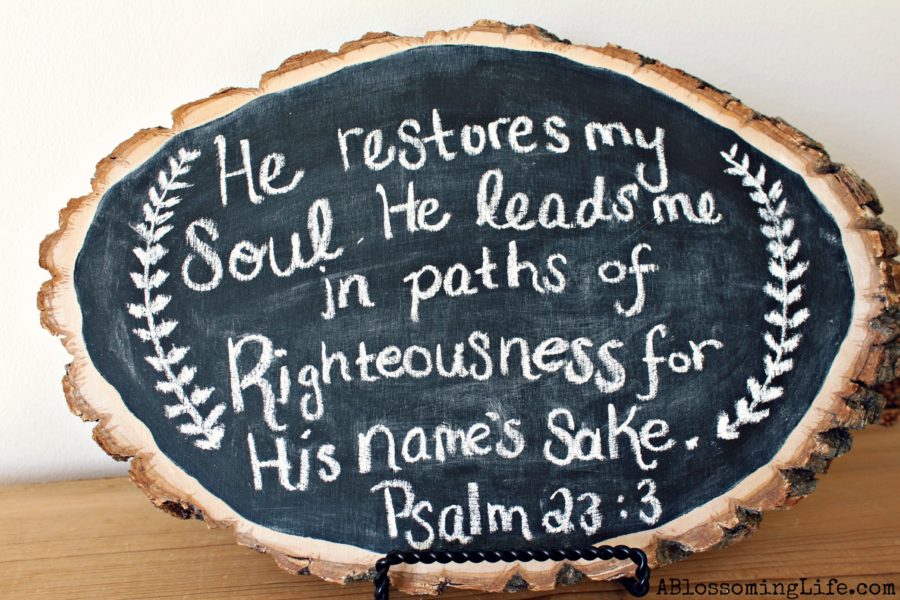 He restores my
Soul. He leads me
in paths of
Righteousness for
His name's sake.
Psalm 23:3
ABlossomingLife.com